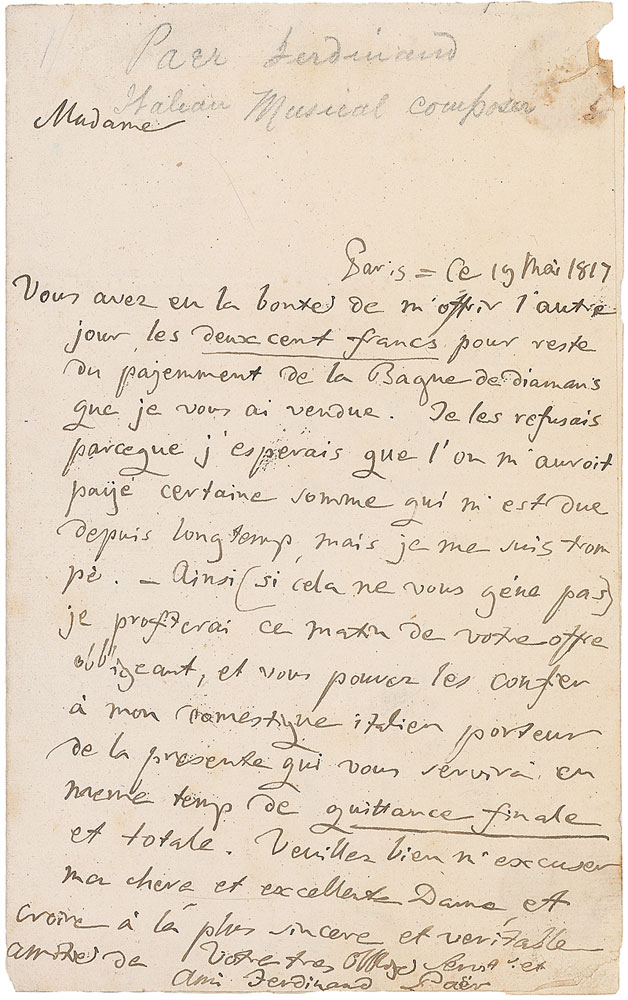 Paer Ferdinand
Italian Musical composer
Madame
Paris = Ce 19 Mai 1817
Vous avez eu la bontes de m'offrir l'autre
jour les deux cent francs pour reste
du payemment de la Bague de diamans
que je vous ai vendue. Je les refusais
parceque j'esperais que l'on m'auroit
payé certaine somme qui m'est due
depuis longtemp, mais je me suis trom
pé. – Ainsi (si cela ne vous géne pas)
je profiterai ce matin de votre offre
obbligeant, et vous pouvez les confier
à mon domestique italien porteur
de la presente qui vous servirà en
meme temp de quittance finale
et totale. Veuillez bien m'excuser
ma chere et excellente Dame, et
croire à la plus sincere et veritable
amities de Votre tres obblige Servit.r et
Ami Ferdinand Paër